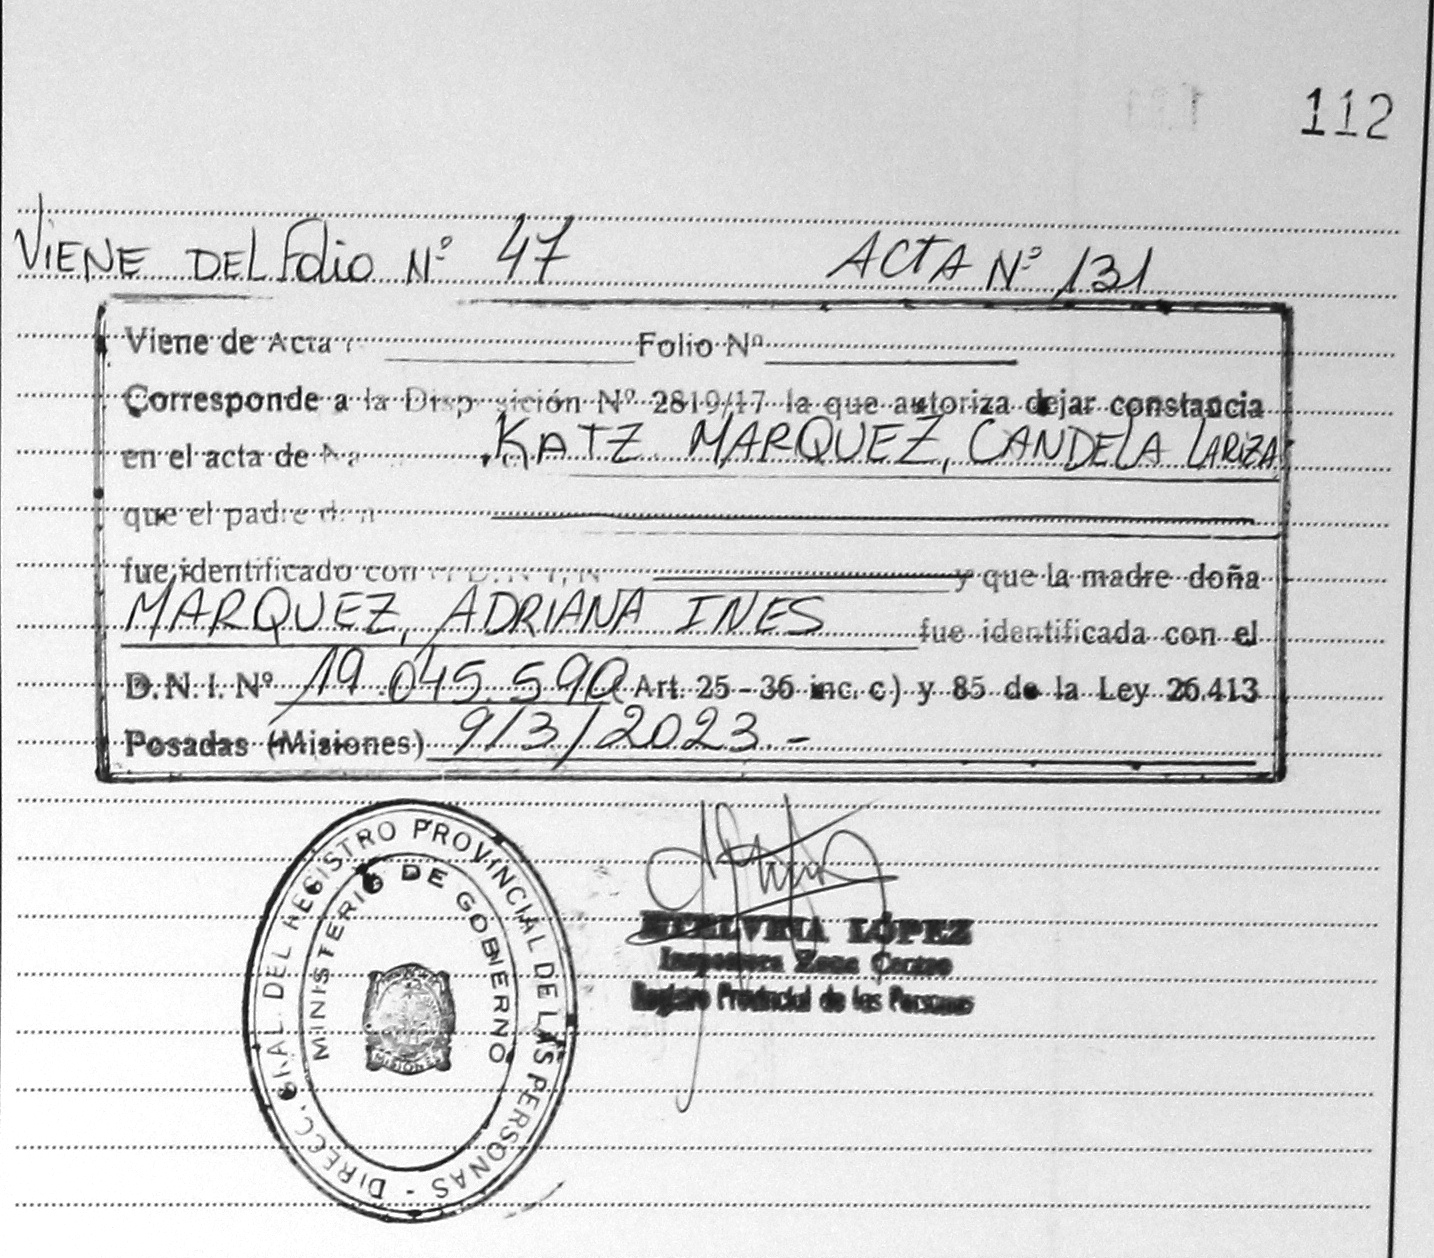 112
VIENE DEL FOLIO Nº 47 ACTA Nº 131
Viene de Acta Folio Nº
Corresponde a la Disposición Nº 2819/17 la que autoriza dejar constancia
en el acta de KATZ MARQUEZ, CANDELA LARIZA
que el padre
fue identificado con y que la madre doña
MARQUEZ, ADRIANA INES fue identificada con el
D.N.I. Nº 19.045.590 Art. 25-36 inc. c) y 85 de la Ley 26.413
Posadas (Misiones) 9/3/2023.-
DIRECC. GRAL. DEL REGISTRO PROVINCIAL DE LAS PERSONAS -
MINISTERIO DE GOBIERNO
MISIONES
LÓPEZ
Inspectora Zona Centro
Registro Provincial de las Personas